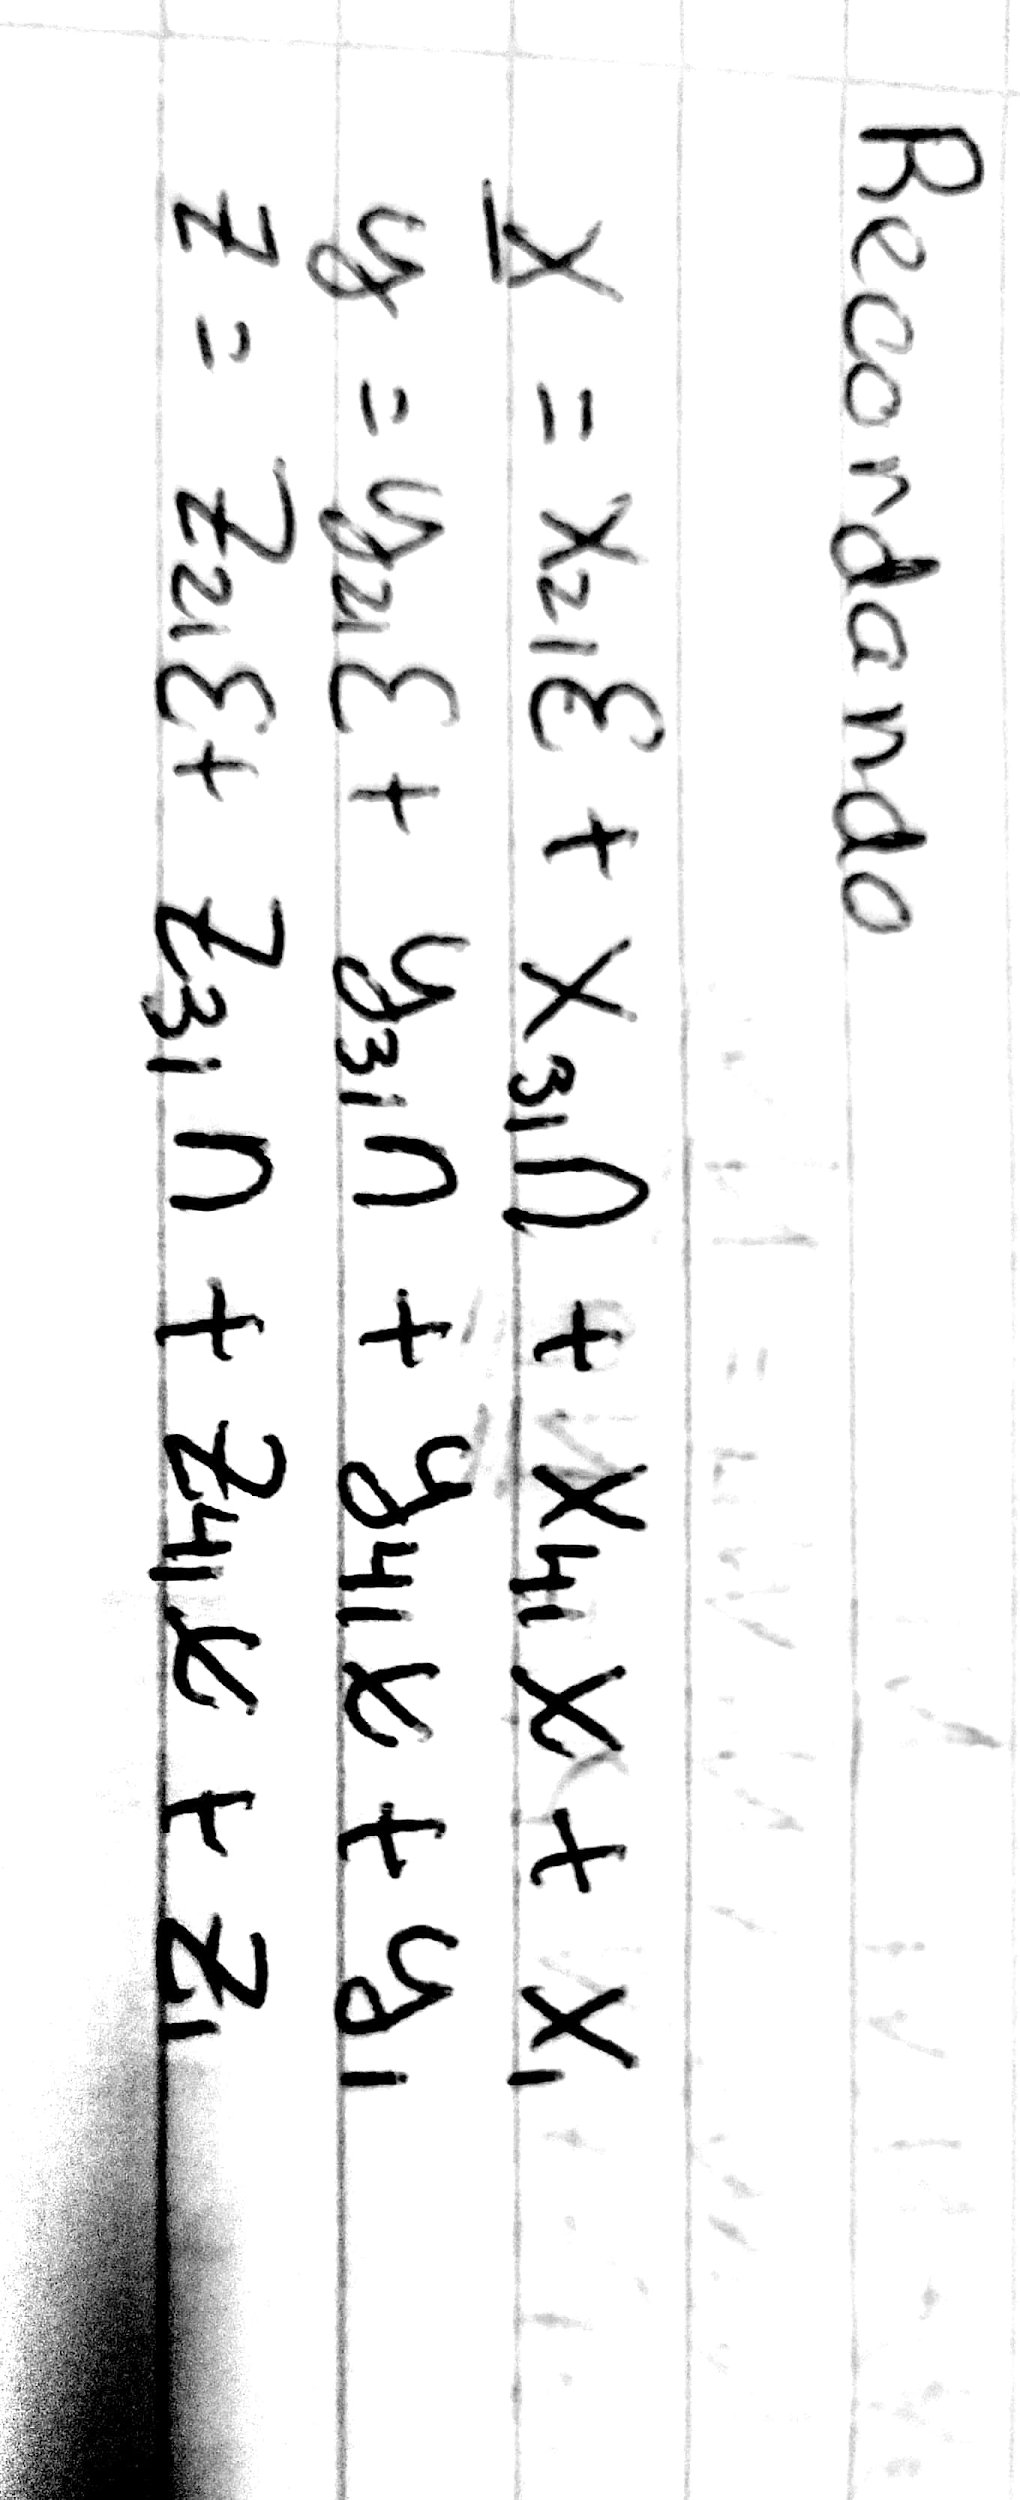 Recordando
X = X₂₁Ɛ + X₃₁n + X₄₁X + X₁
y = y₂₁Ɛ + y₃₁n + y₄₁x + y₁
z = z₂₁Ɛ + z₃₁n + z₄₁x + z₁